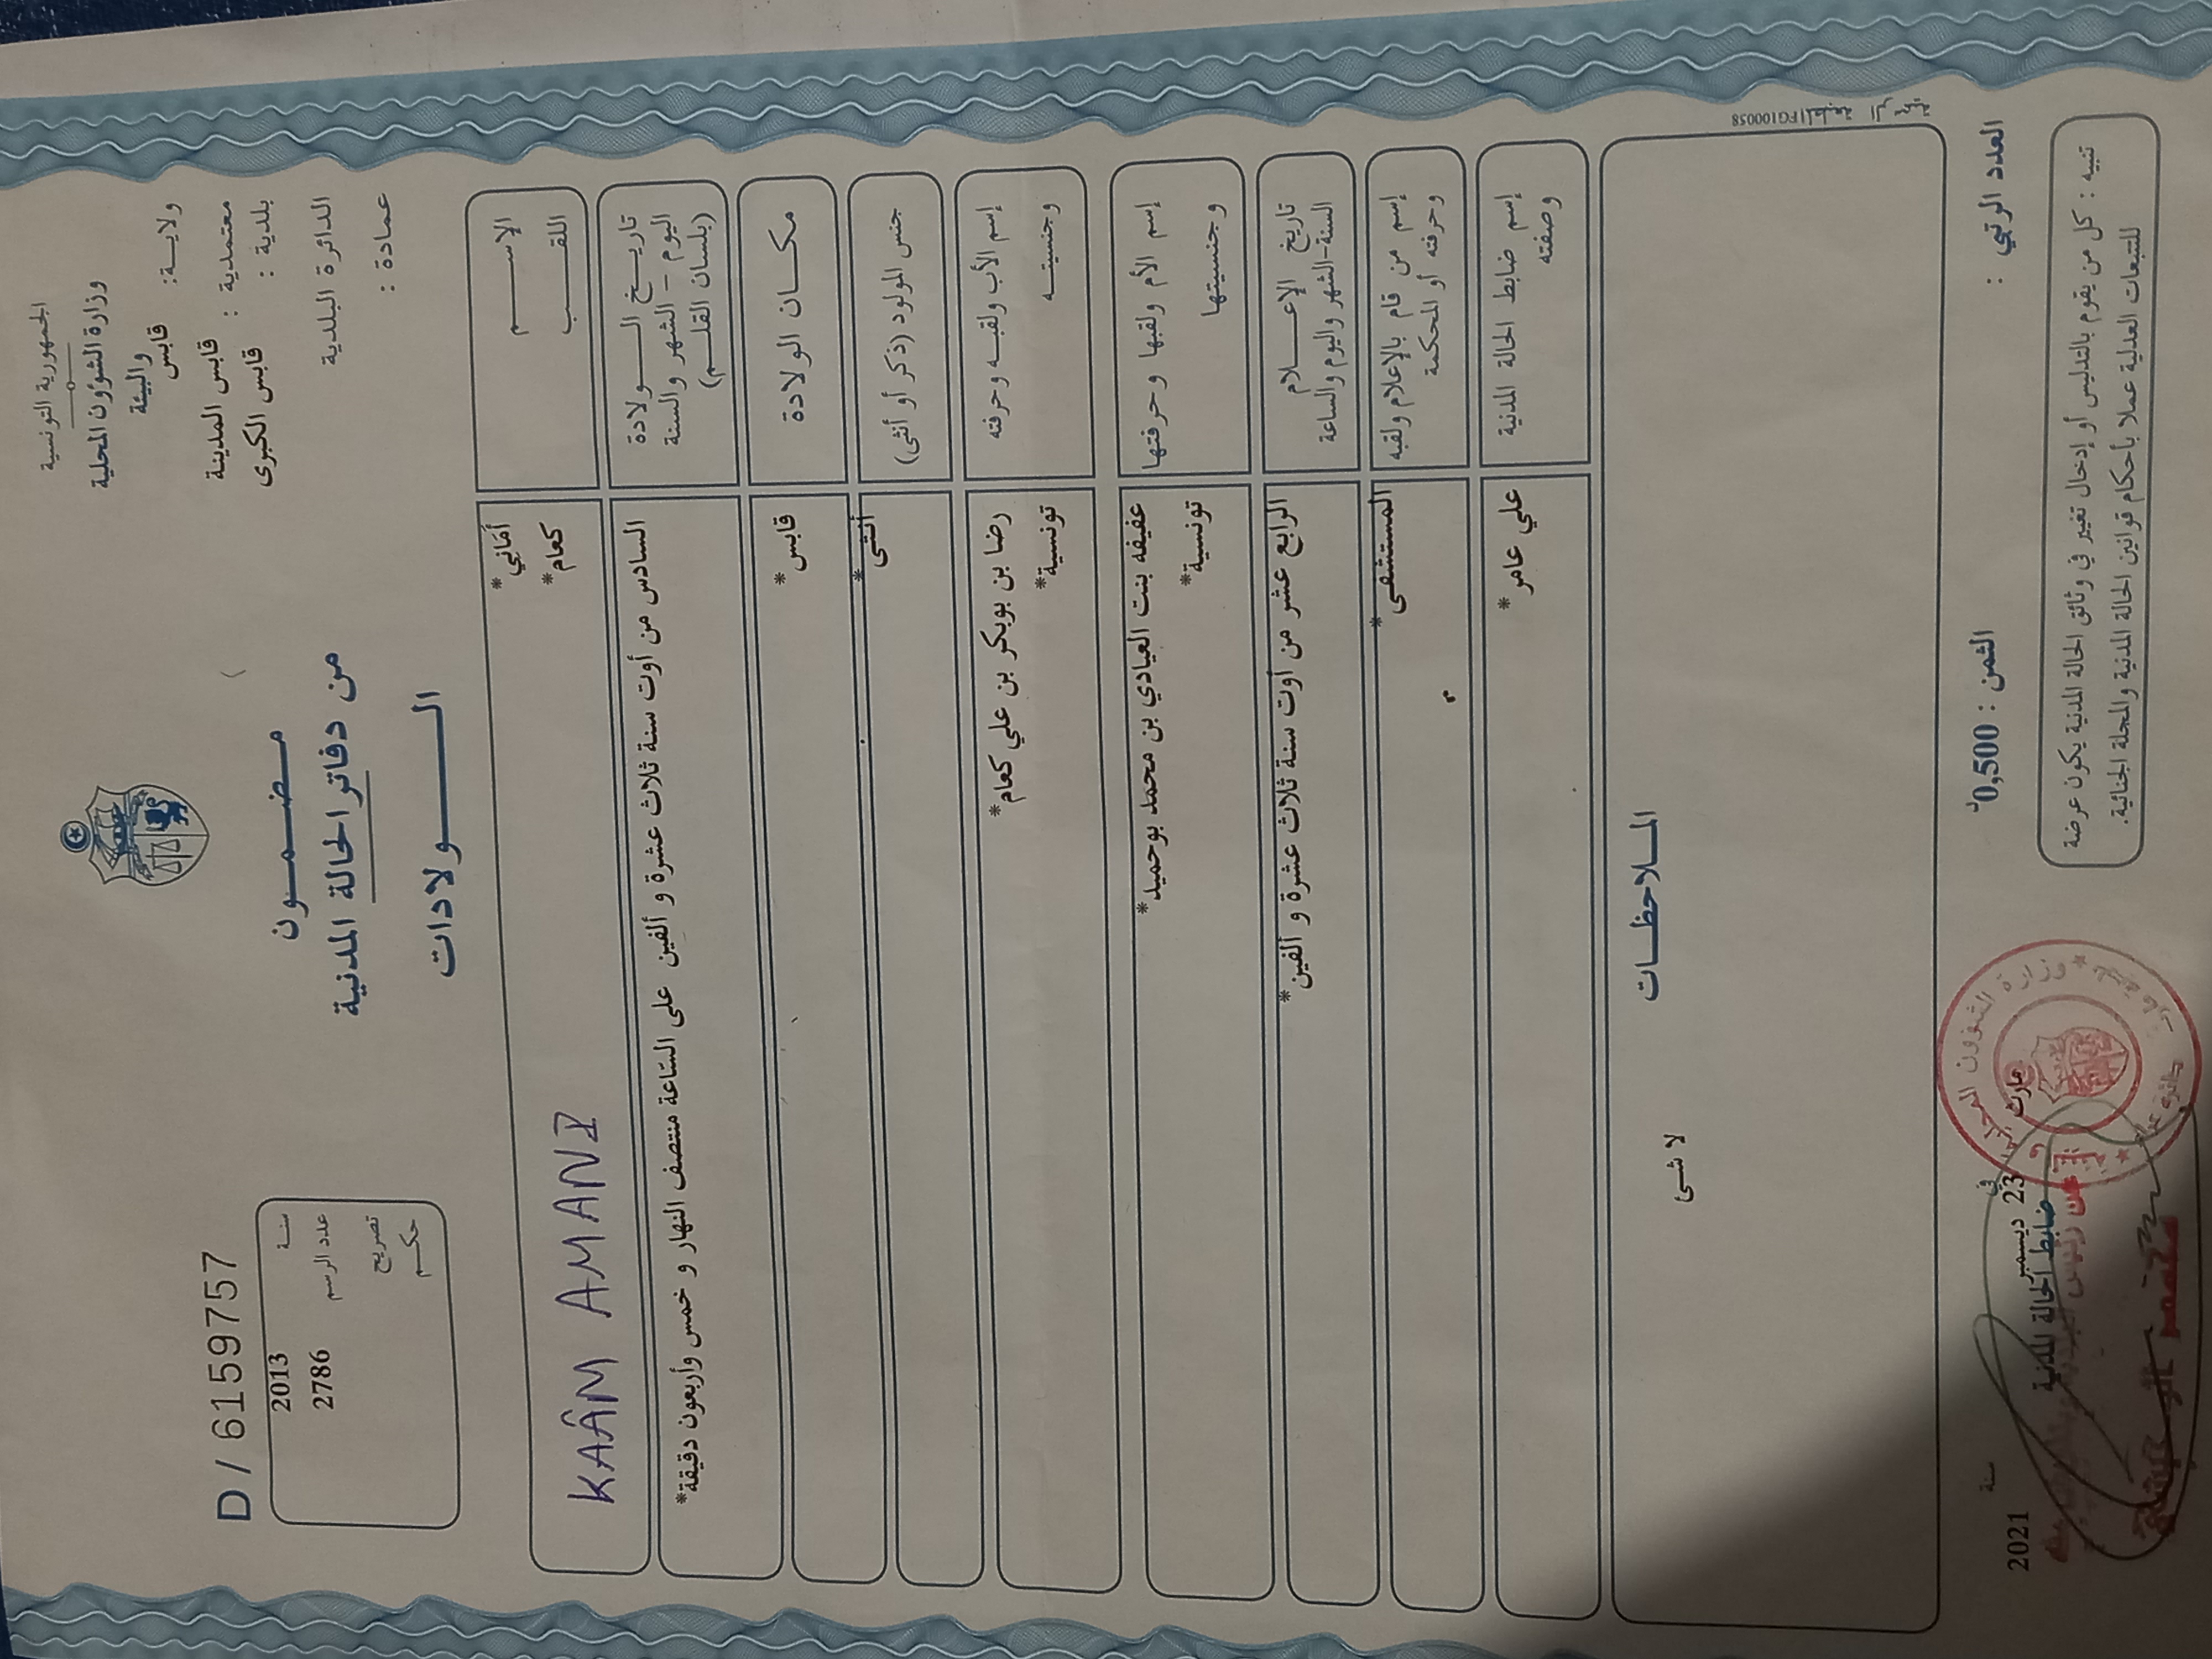 الجمهورية التونسية
وزارة الشؤون المحلية
والبيئة
ولاية: قابس
معتمدية : قابس المدينة
بلدية : قابس الكبرى
الدائرة البلدية
عمادة :
مضمون
من دفاتر الحالة المدنية
الولادات
D / 6159757
سنة 2013
عدد الرسم 2786
تصريح
حكم
الاسم أماني*
اللقب كعام*
KAÂM AMANI
تاريخ الولادة
اليوم - الشهر والسنة
(بلسان القلم)
السادس من أوت سنة ثلاث عشرة و ألفين على الساعة منتصف النهار و خمس وأربعون دقيقة*
مكان الولادة قابس*
جنس المولود (ذكر أو أنثى) أنثى*
إسم الأب ولقبه وحرفته رضا بن بوبكر بن علي كعام*
وجنسيته تونسية*
إسم الأم ولقبها وحرفتها عفيفه بنت العيادي بن محمد بوحميد*
وجنسيتها تونسية*
تاريخ الإعلام
السنة-الشهر واليوم والساعة
الرابع عشر من أوت سنة ثلاث عشرة و ألفين*
إسم من قام بالإعلام ولقبه
وحرفته أو المحكمة
المستشفى*
إسم ضابط الحالة المدنية
وصفته
علي عامر*
الملاحظات
لا شئ
FG100058
العدد الرتبي :
الثمن : 0,500د
في 23 ديسمبر سنة 2021
ضابط الحالة المدنية
وزارة الشؤون المحلية
تنبيه : كل من يقوم بالتدليس أو إدخال تغيير في وثائق الحالة المدنية يكون عرضة
للتتبعات العدلية عملا بأحكام قوانين الحالة المدنية والمجلة الجنائية.